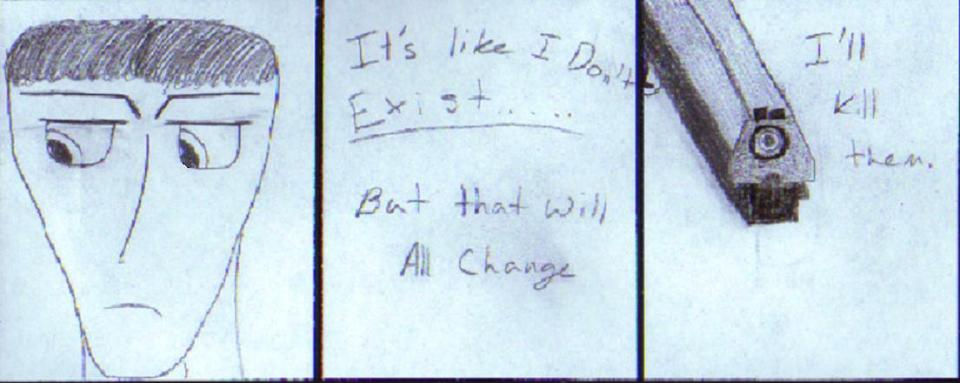 It's like I Don't
Exist.....
But that will
All Change
I'll
kill
them.